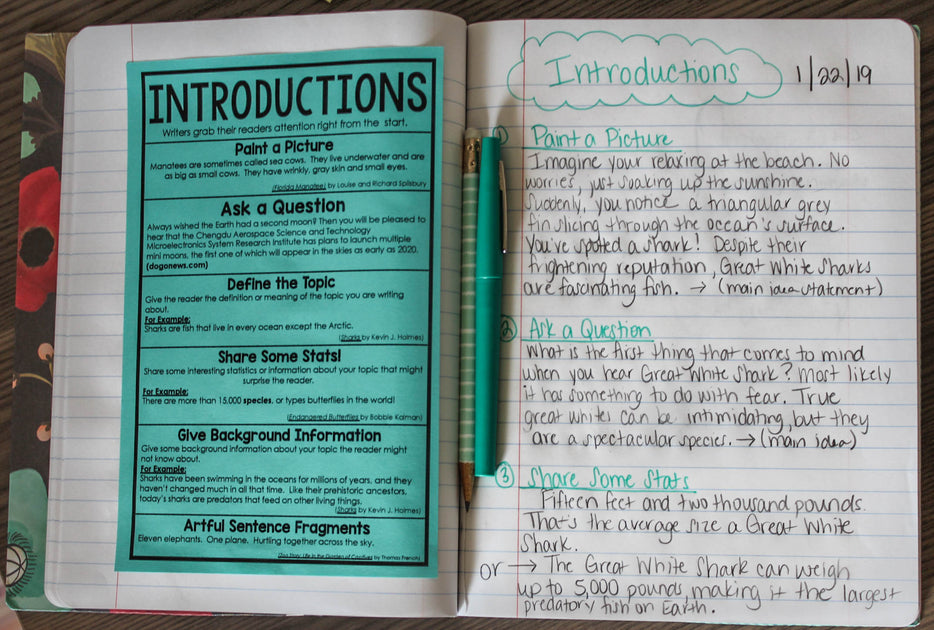 INTRODUCTIONS
Writers grab their readers attention right from the start.
Paint a Picture
Manatees are sometimes called sea cows. They live underwater and are
as big as small cows. They have wrinkly, gray skin and small eyes.
(Florida Manatee) by Louise and Richard Spilsbury
Ask a Question
Always wished the Earth had a second moon? Then you will be pleased to
hear that the Chengdu Aerospace Science and Technology
Microelectronics System Research Institute has plans to launch multiple
mini moons, the first one of which will appear in the skies as early as 2020.
(dogonews.com)
Define the Topic
Give the reader the definition or meaning of the topic you are writing
about.
For Example:
Sharks are fish that live in every ocean except the Arctic.
(Sharks by Kevin J. Holmes)
Share Some Stats!
Share some interesting statistics or information about your topic that might
surprise the reader.
For Example:
There are more than 15,000 species, or types butterflies in the world!
(Endangered Butterflies by Bobbie Kalman)
Give Background Information
Give some background information about your topic the reader might
not know about.
For Example:
Sharks have been swimming in the oceans for millions of years, and they
haven't changed much in all that time. Like their prehistoric ancestors,
today's sharks are predators that feed on other living things.
(Sharks by Kevin J. Holmes)
Artful Sentence Fragments
Eleven elephants. One plane. Hurtling together across the sky.
(Zoo Story: Life in the Garden of Captives by Thomas French)
Introductions 1/22/19
① Paint a Picture
Imagine your relaxing at the beach. No
worries, just soaking up the sunshine.
Suddenly, you notice a triangular grey
fin slicing through the ocean's surface.
You've spotted a shark! Despite their
frightening reputation, Great White Sharks
are fascinating fish. → (main idea statement)
② Ask a Question
What is the first thing that comes to mind
when you hear Great White Shark? Most likely
it has something to do with fear. True
great whites can be intimidating, but they
are a spectacular species. → (main idea)
③ Share Some Stats
Fifteen feet and two thousand pounds.
That's the average size a Great White
Shark.
or → The Great White Shark can weigh
up to 5,000 pounds, making it the largest
predatory fish on Earth.